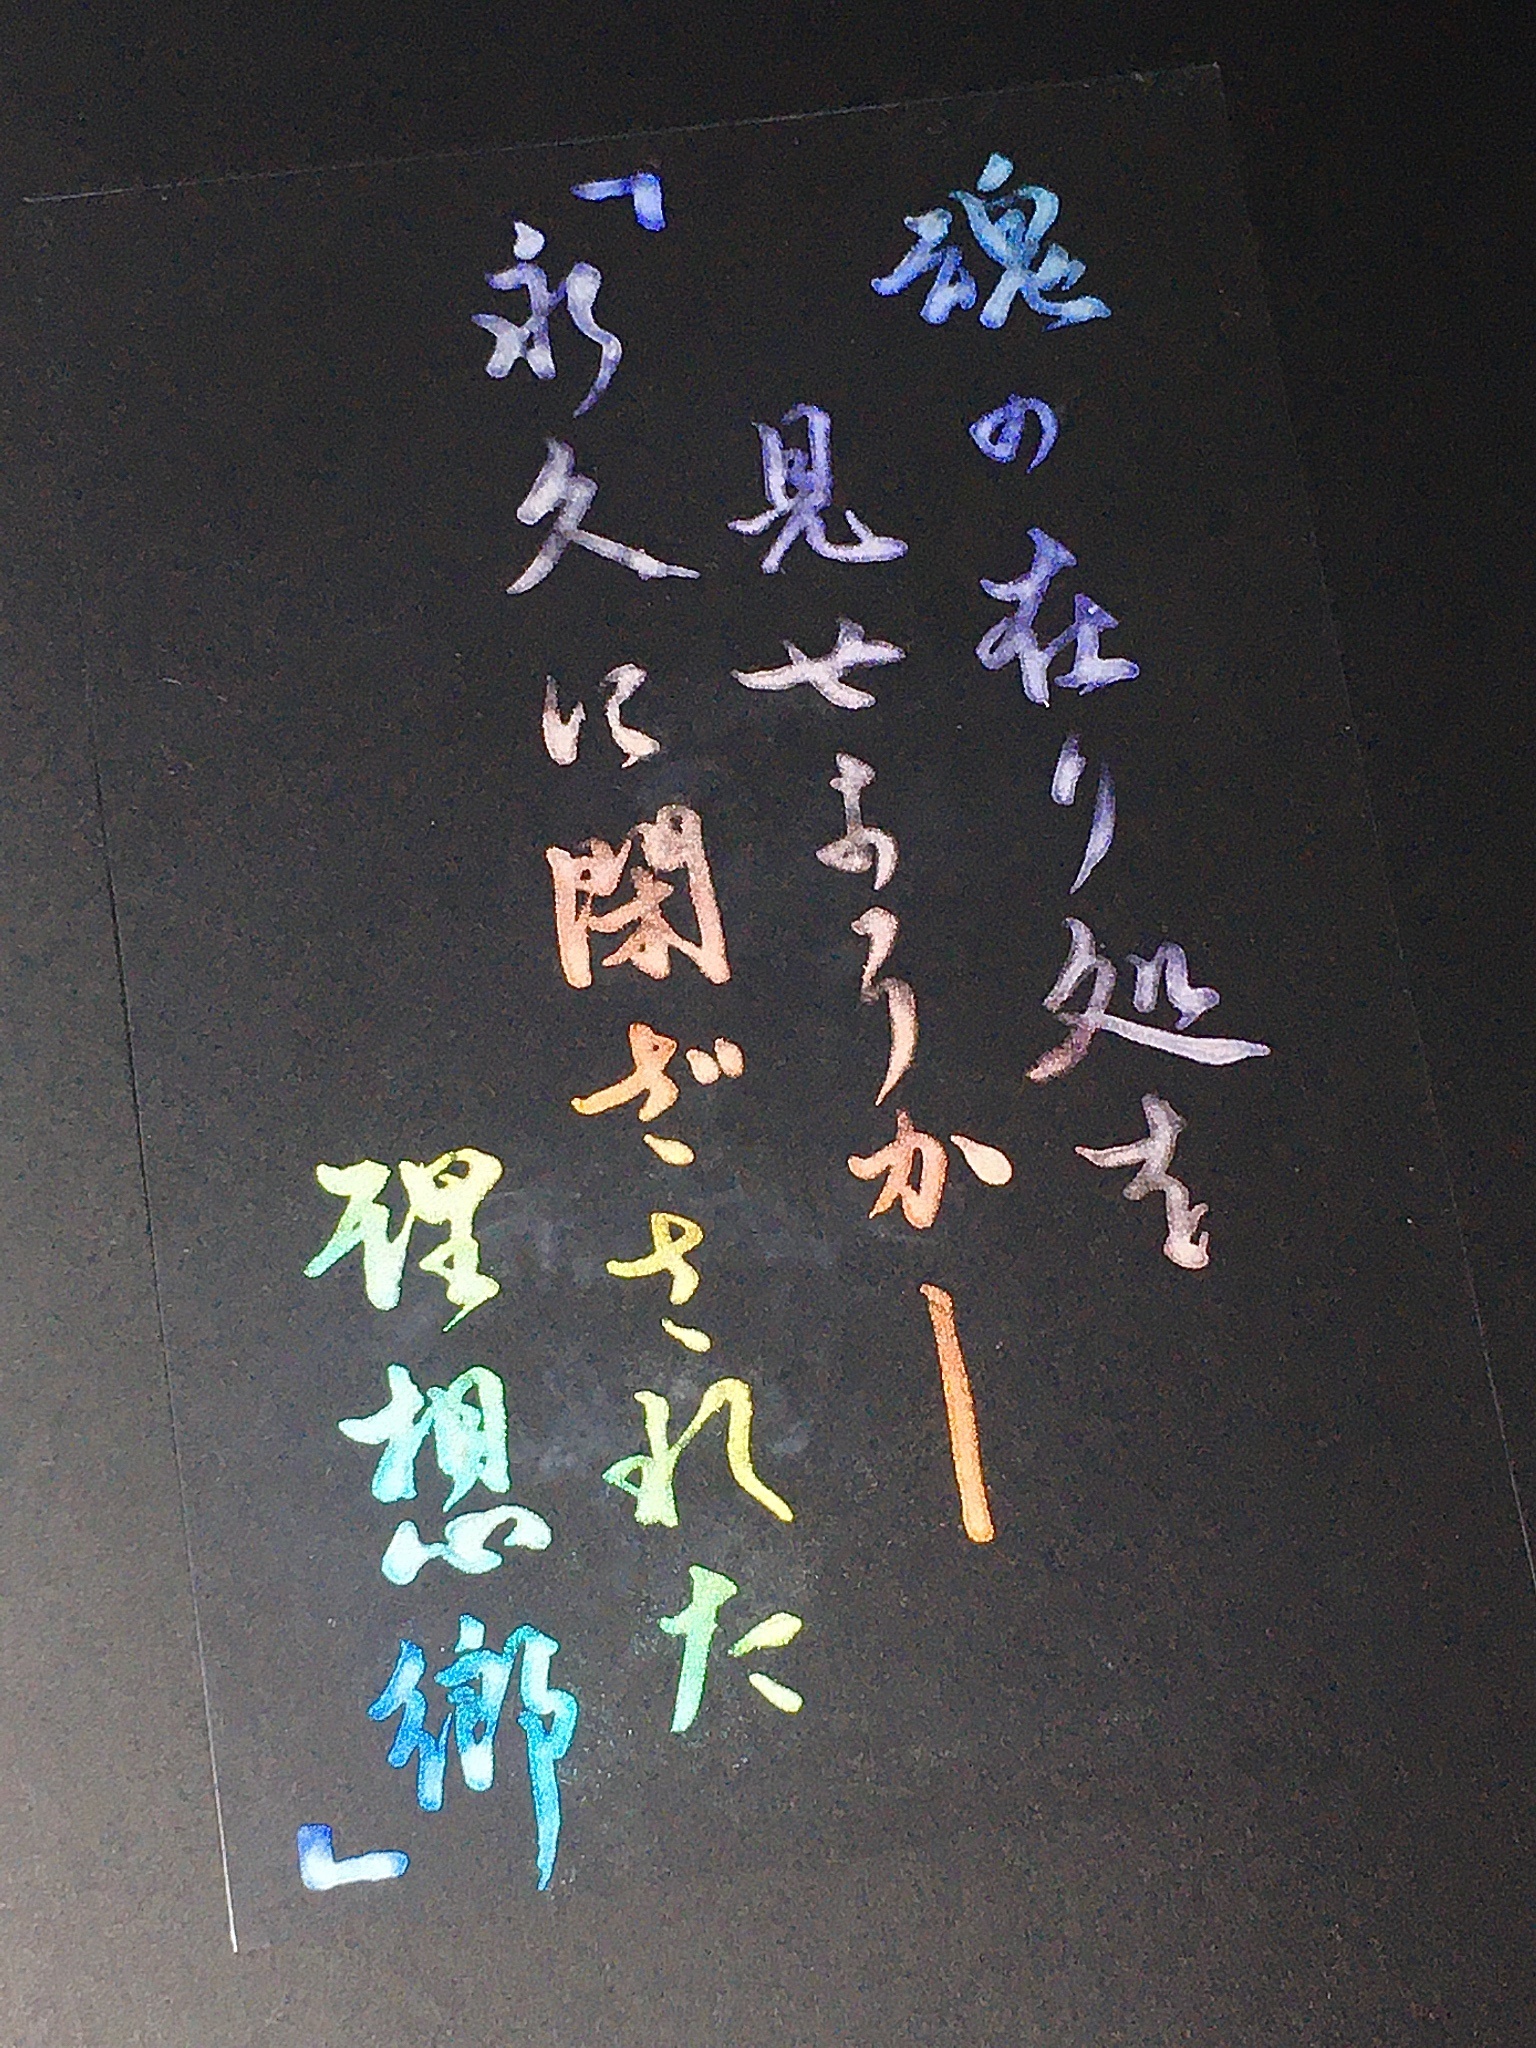 魂の在り処を
見せようか―
「永久に閉ざされた
理想郷」